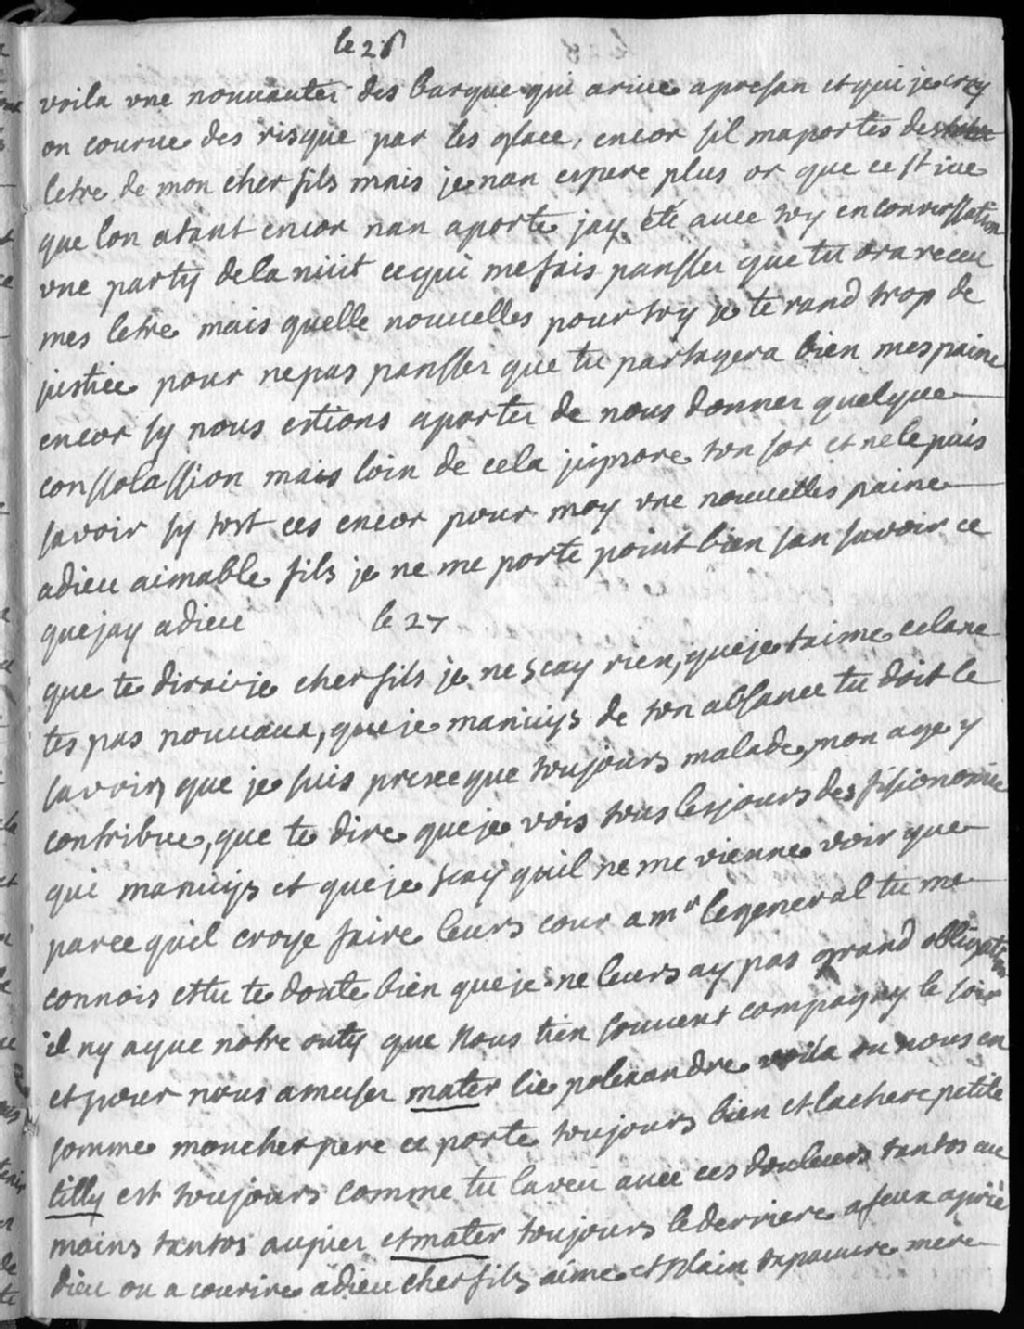 le 26
voila une nouvautéz des barque qui arive apresan et qui je croy
on courue des risque par les glace, encor sil maportes des
letre de mon cher fils mais je nan espere plus or que ce st ive
que lon atant encor nan aporte jay été avec toy en converssation
une party de la nuit ce qui me fais pansser que tu ora receu
mes letre mais quelle nouvelles pour toy je te rand trop de
justice pour ne pas pansser que tu partagera bien mes paine
encor sy nous etions aporter de nous donner quelque
conssolassion mais loin de cela jignore ton sor et ne le puis
savoir sy tost ces encor pour moy une nouvelles paine
adieu aimable fils je ne me porte point bien san savoir ce
que jay adieu le 27
que te dirai je cher fils je ne scay rien, que je taime cela ne
tes pas nouvaux, que je manuys de ton absance tu doit le
savoir, que je suis presceque toujours malade, mon age y
contribue, que te dire que je vois tous les jours des fisionomie
qui manuys et que je scay quil ne me vienne voir que
parce quil croye faire leurs cour a mr le general tu me
connois et tu te doute bien que je ne leurs ay pas grand obligation
il ny a que notre outy que nous tien souvent compagny le soir
et pour nous amuser mater lie polexandre voila ou nous en
somme moncher pere ce porte toujours bien et la chere petite
tilly est toujours comme tu laveu avec ces douleurs tantos au
mains tantos aupier et mater toujours le derriere a feux apriè
dieu on a courire adieu cher fils aime et plain ta pauvre mere